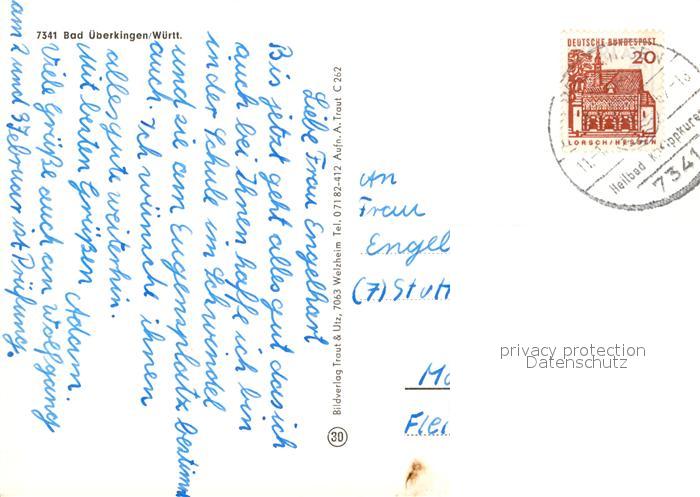 7341 Bad Überkingen/Württ.
Liebe Frau Engelhart
Bis jetzt geht alles gut das ich
auch bei Ihnen hoffe ich bin
in der Schule im Schwindel
und sie am Eugensplatz bestimmt
auch. Ich wünsche ihnen
alles gute weiterhin.
Mit besten Grüßen Adam.
Viele Grüße auch an Wolfgang
am 2 und 3 Februar ist Prüfung.
Bildverlag Traut & Utz, 7063 Welzheim Tel. 07182-412 Aufn. A. Traut C 262
30
DEUTSCHE BUNDESPOST
20
LORSCH/HESSEN
Heilbad
7341
An
Frau
Engel
(7) Stutt
Mo
Flei
privacy protection
Datenschutz